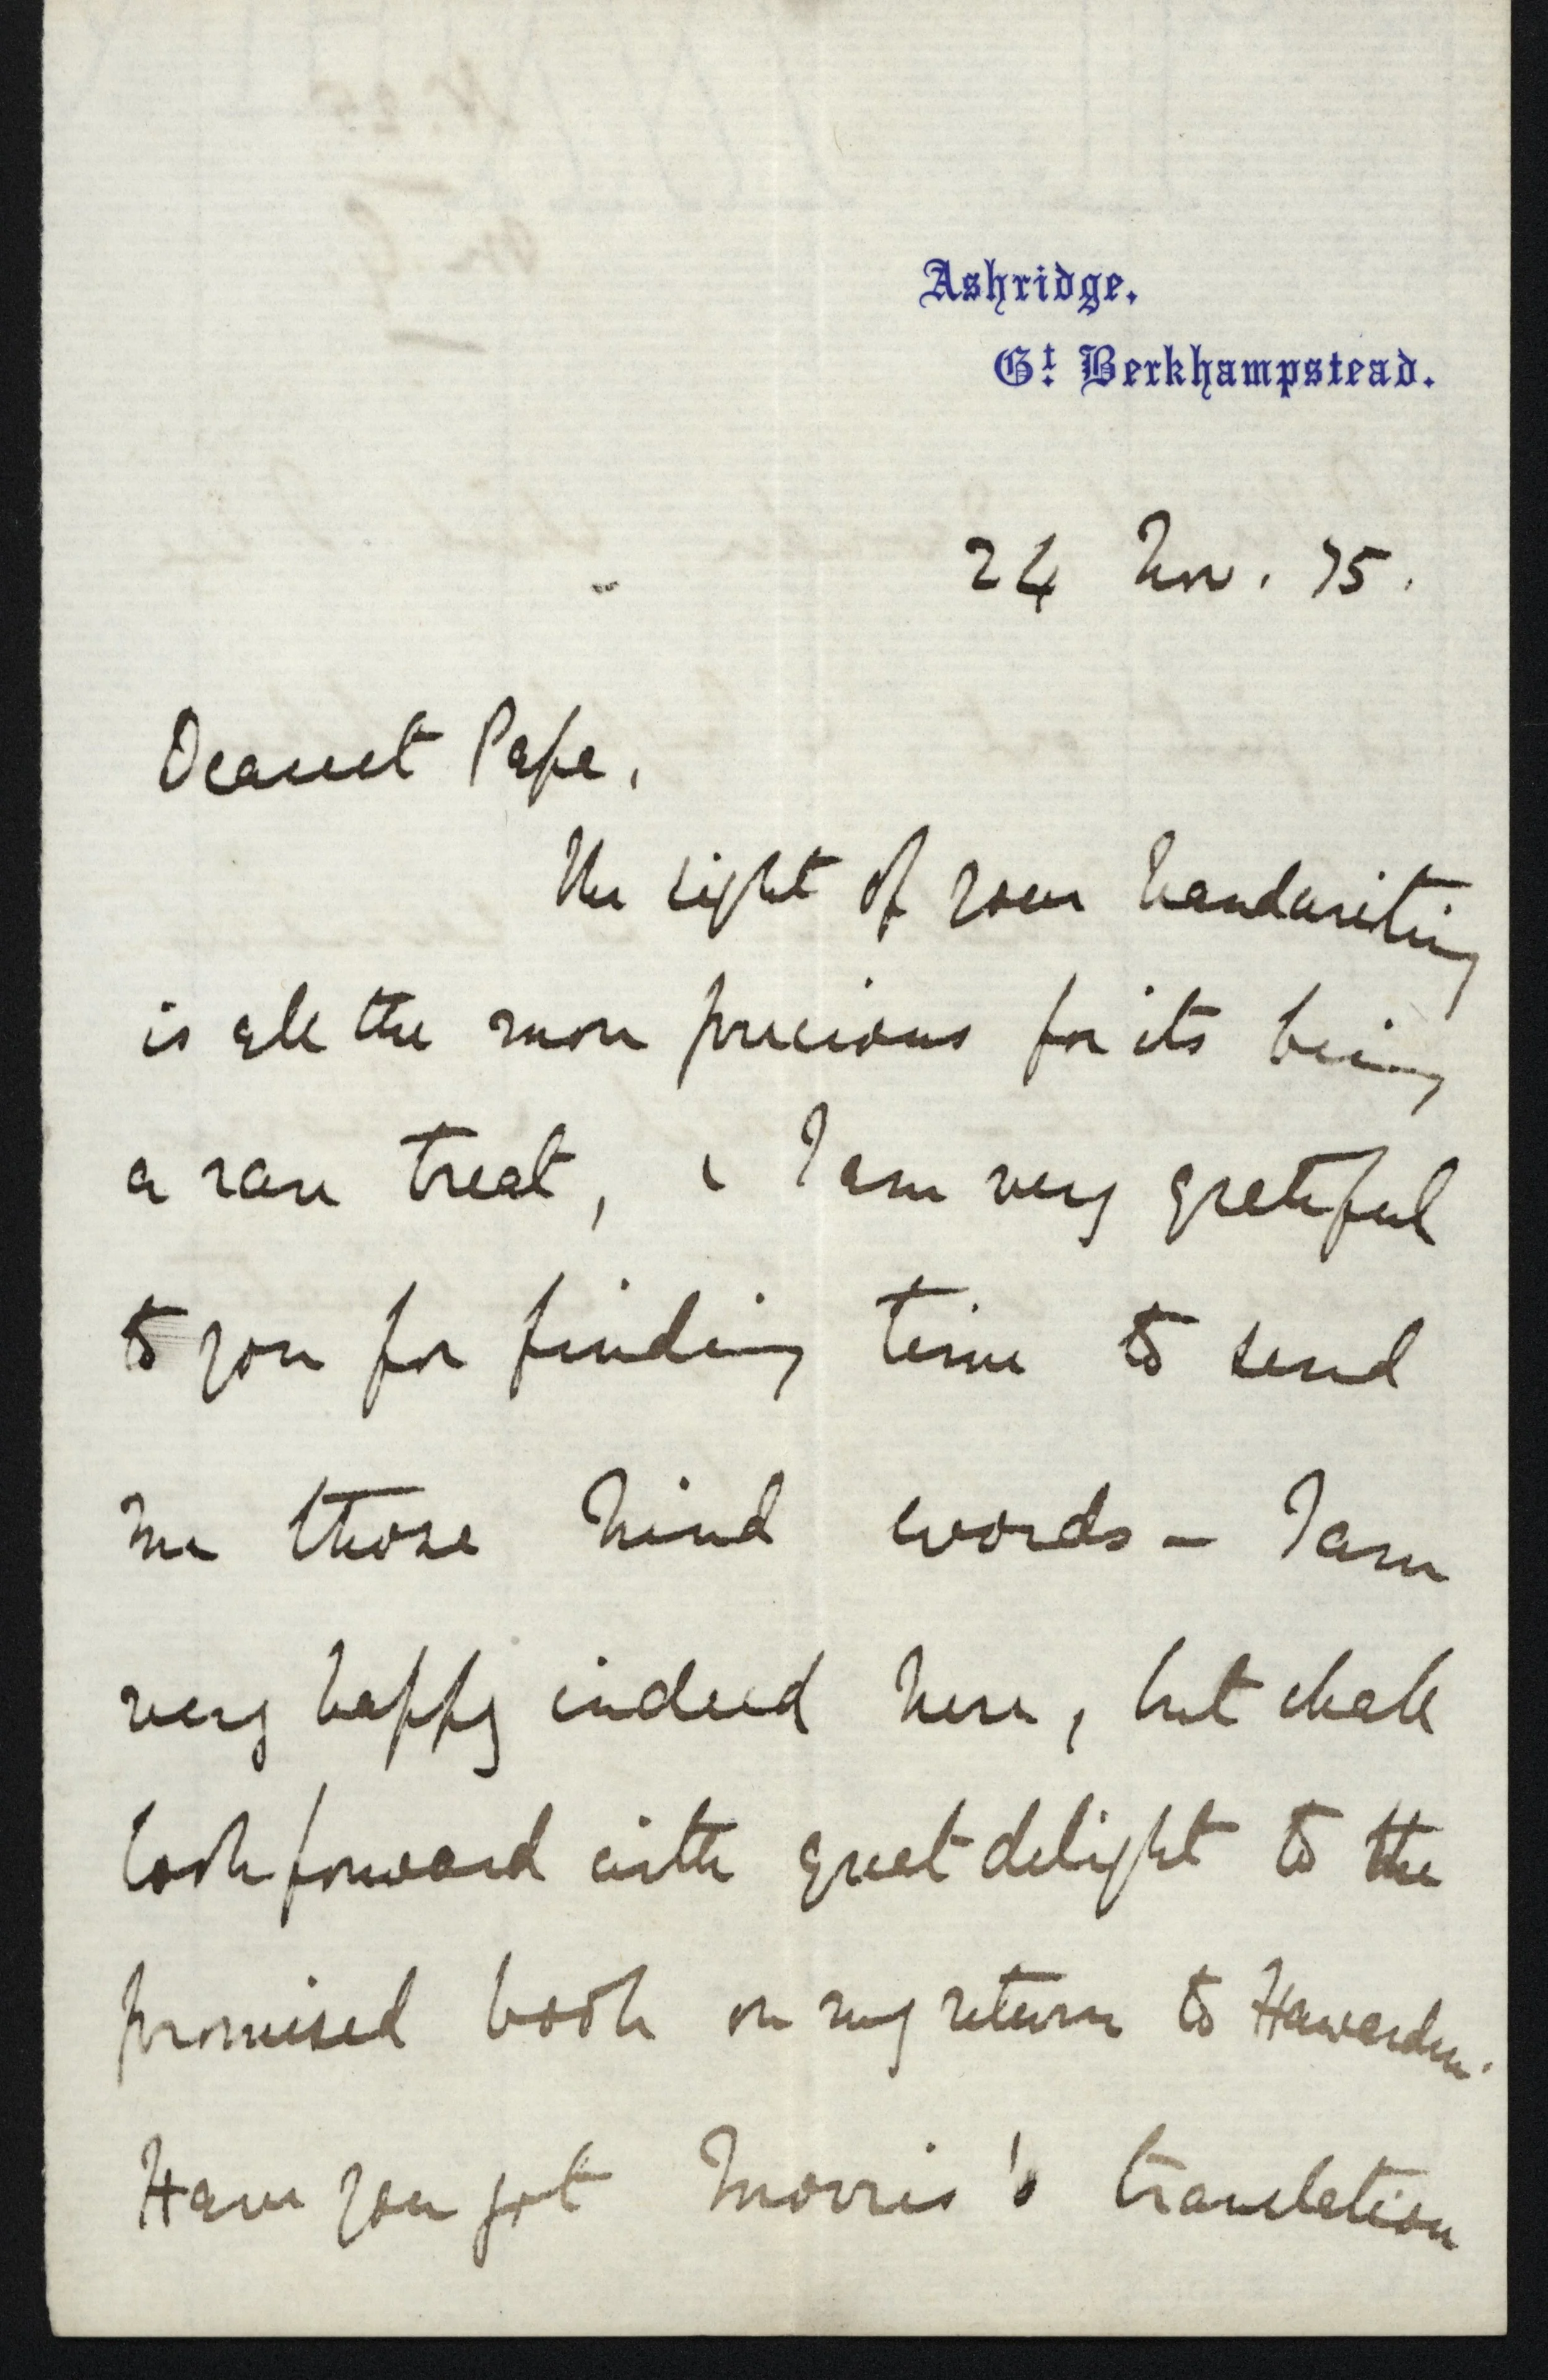 Ashridge.
Gt. Berkhampstead.
24 Nov. 75.
Dearest Papa,
The sight of your handwriting
is all the more precious for its being
a rare treat, & I am very grateful
to you for finding time to send
me those kind words – I am
very happy indeed here, but shall
look forward with great delight to the
promised book on my return to Hawarden.
Have you got Morris's translation